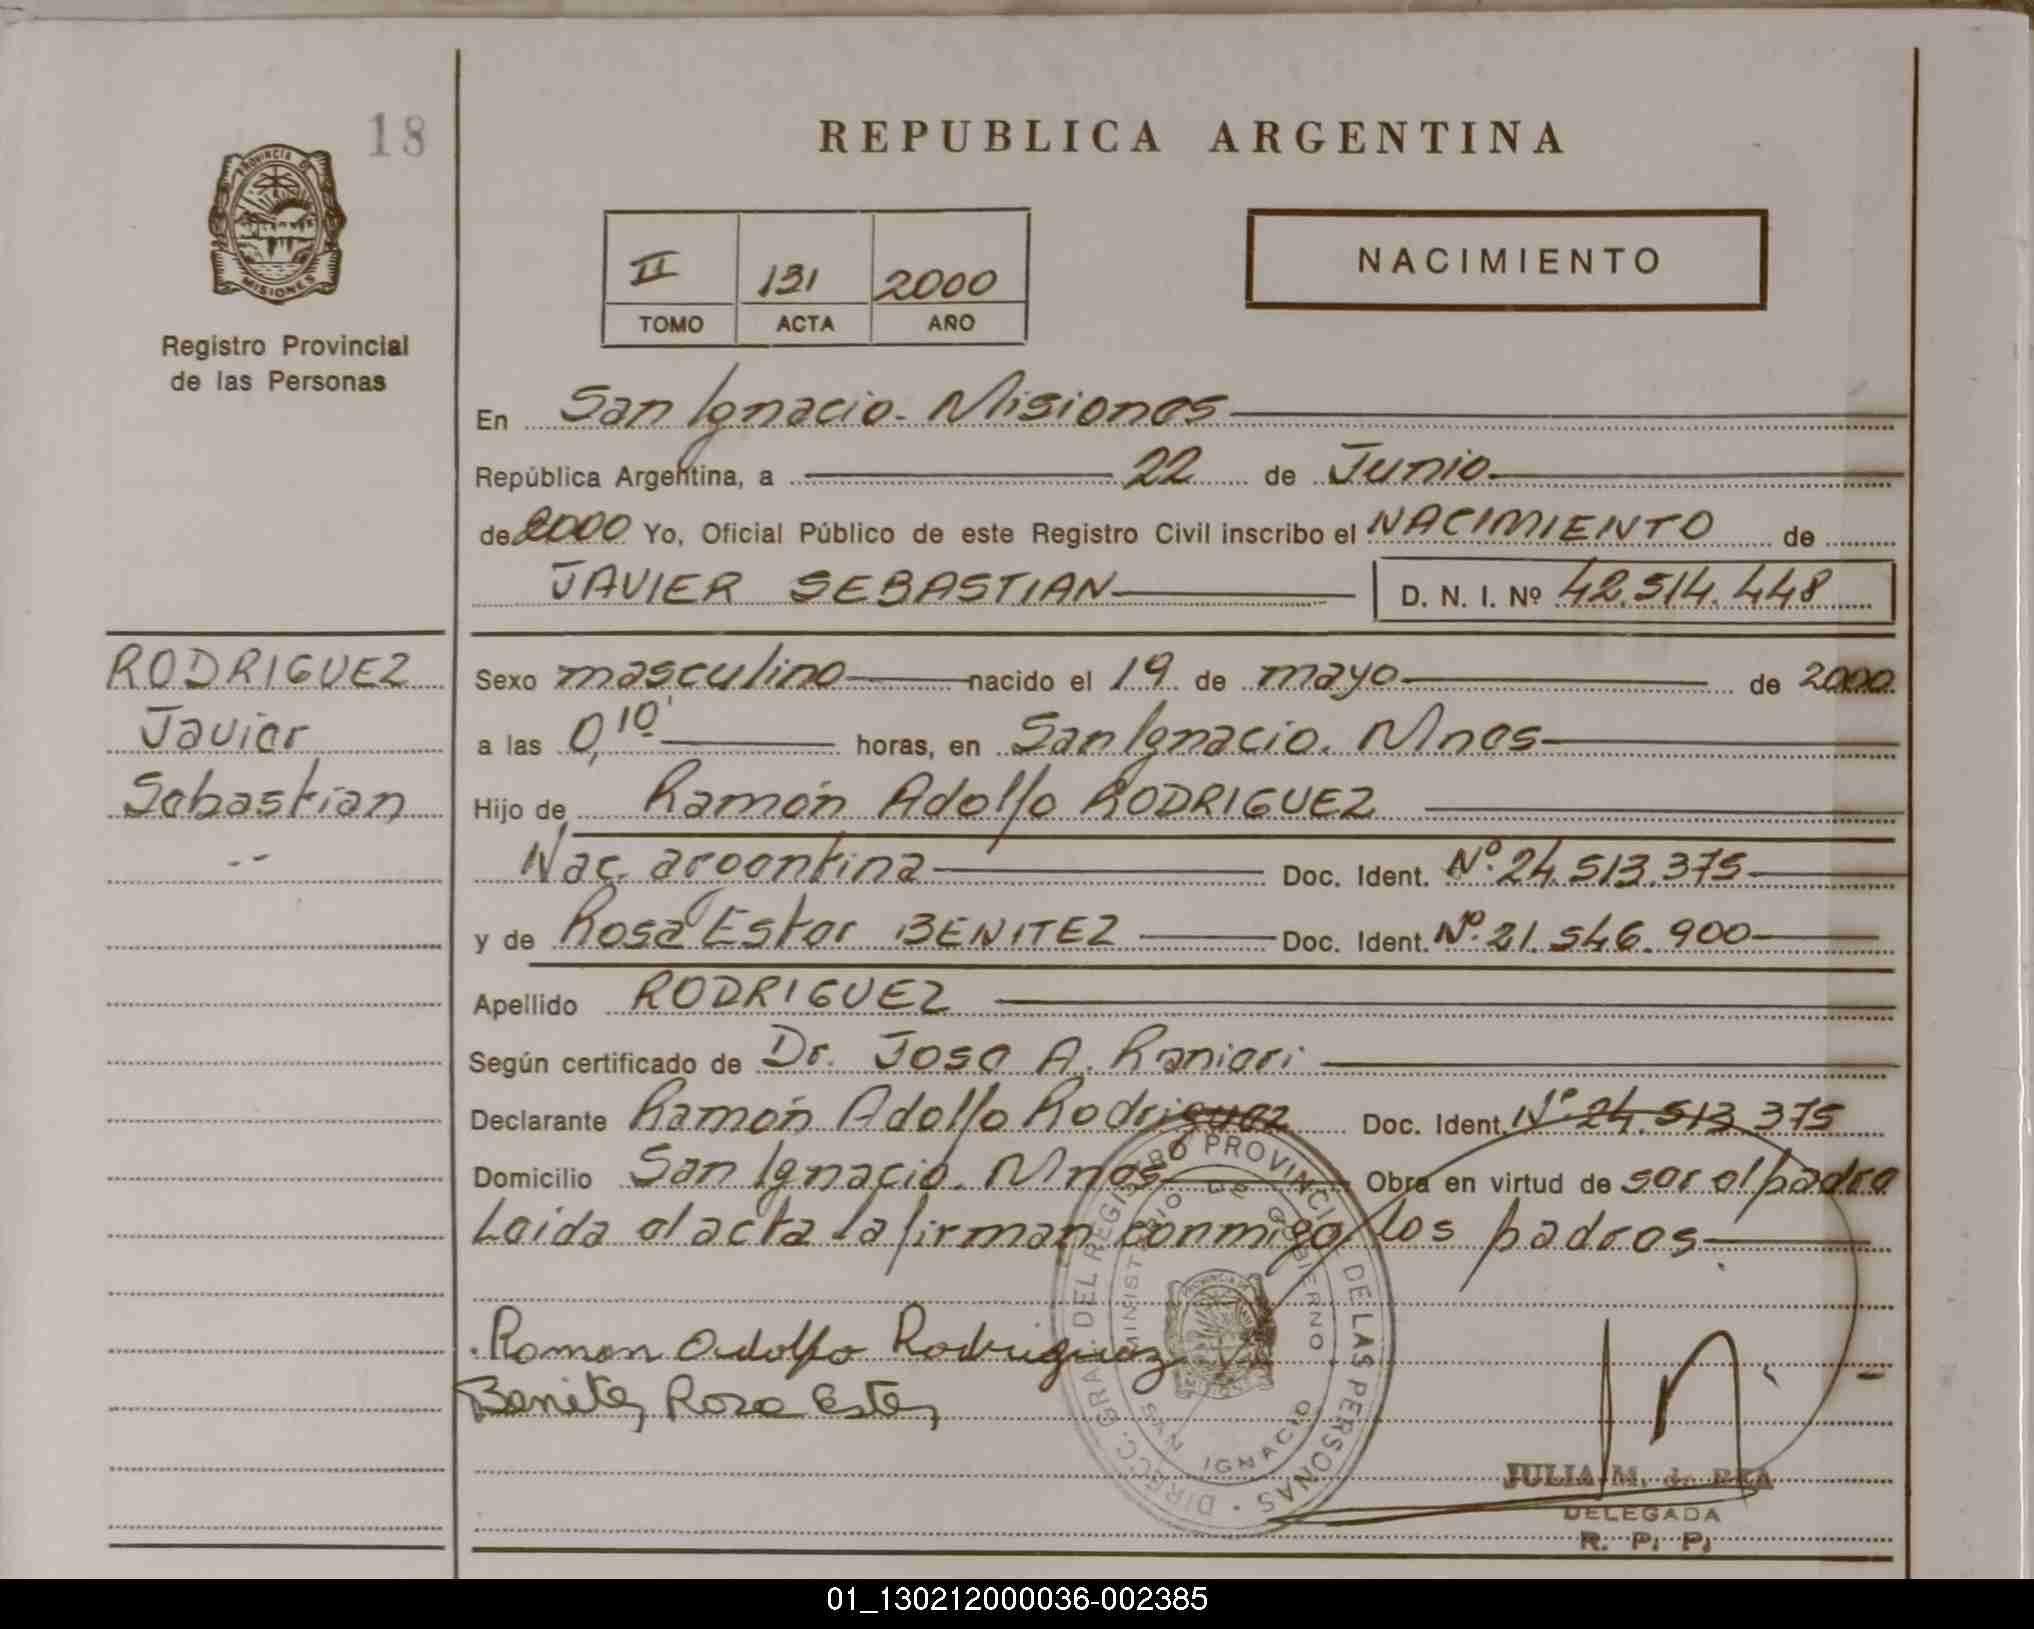 18
REPUBLICA ARGENTINA
PROVINCIA DE
MISIONES
Registro Provincial
de las Personas
II 131 2000
TOMO ACTA AÑO
NACIMIENTO
En San Ignacio. Misiones
República Argentina, a 22 de Junio
de 2000 Yo, Oficial Público de este Registro Civil inscribo el NACIMIENTO de
JAVIER SEBASTIAN D. N. I. Nº 42.514.448
RODRIGUEZ
Javier
Sebastian
Sexo masculino nacido el 19 de mayo de 2000
a las 0,10' horas, en San Ignacio. Mnes
Hijo de Ramón Adolfo RODRIGUEZ
Nac. argentina Doc. Ident. Nº 24.513.375
y de Rosa Ester BENITEZ Doc. Ident. Nº 21.546.900
Apellido RODRIGUEZ
Según certificado de Dr. Jose A. Ranieri
Declarante Ramón Adolfo Rodriguez Doc. Ident. Nº 24.513.375
Domicilio San Ignacio. Mnes Obra en virtud de ser el padre
Leida el acta la firman conmigo los padres
Ramon Adolfo Rodriguez
Benitez Rosa Ester
DIRECC. GRAL. DEL REGISTRO PROVINCIAL DE LAS PERSONAS
MINISTERIO DE GOBIERNO
SAN IGNACIO
JULIA M. de
DELEGADA
R. P. P.
01_130212000036-002385